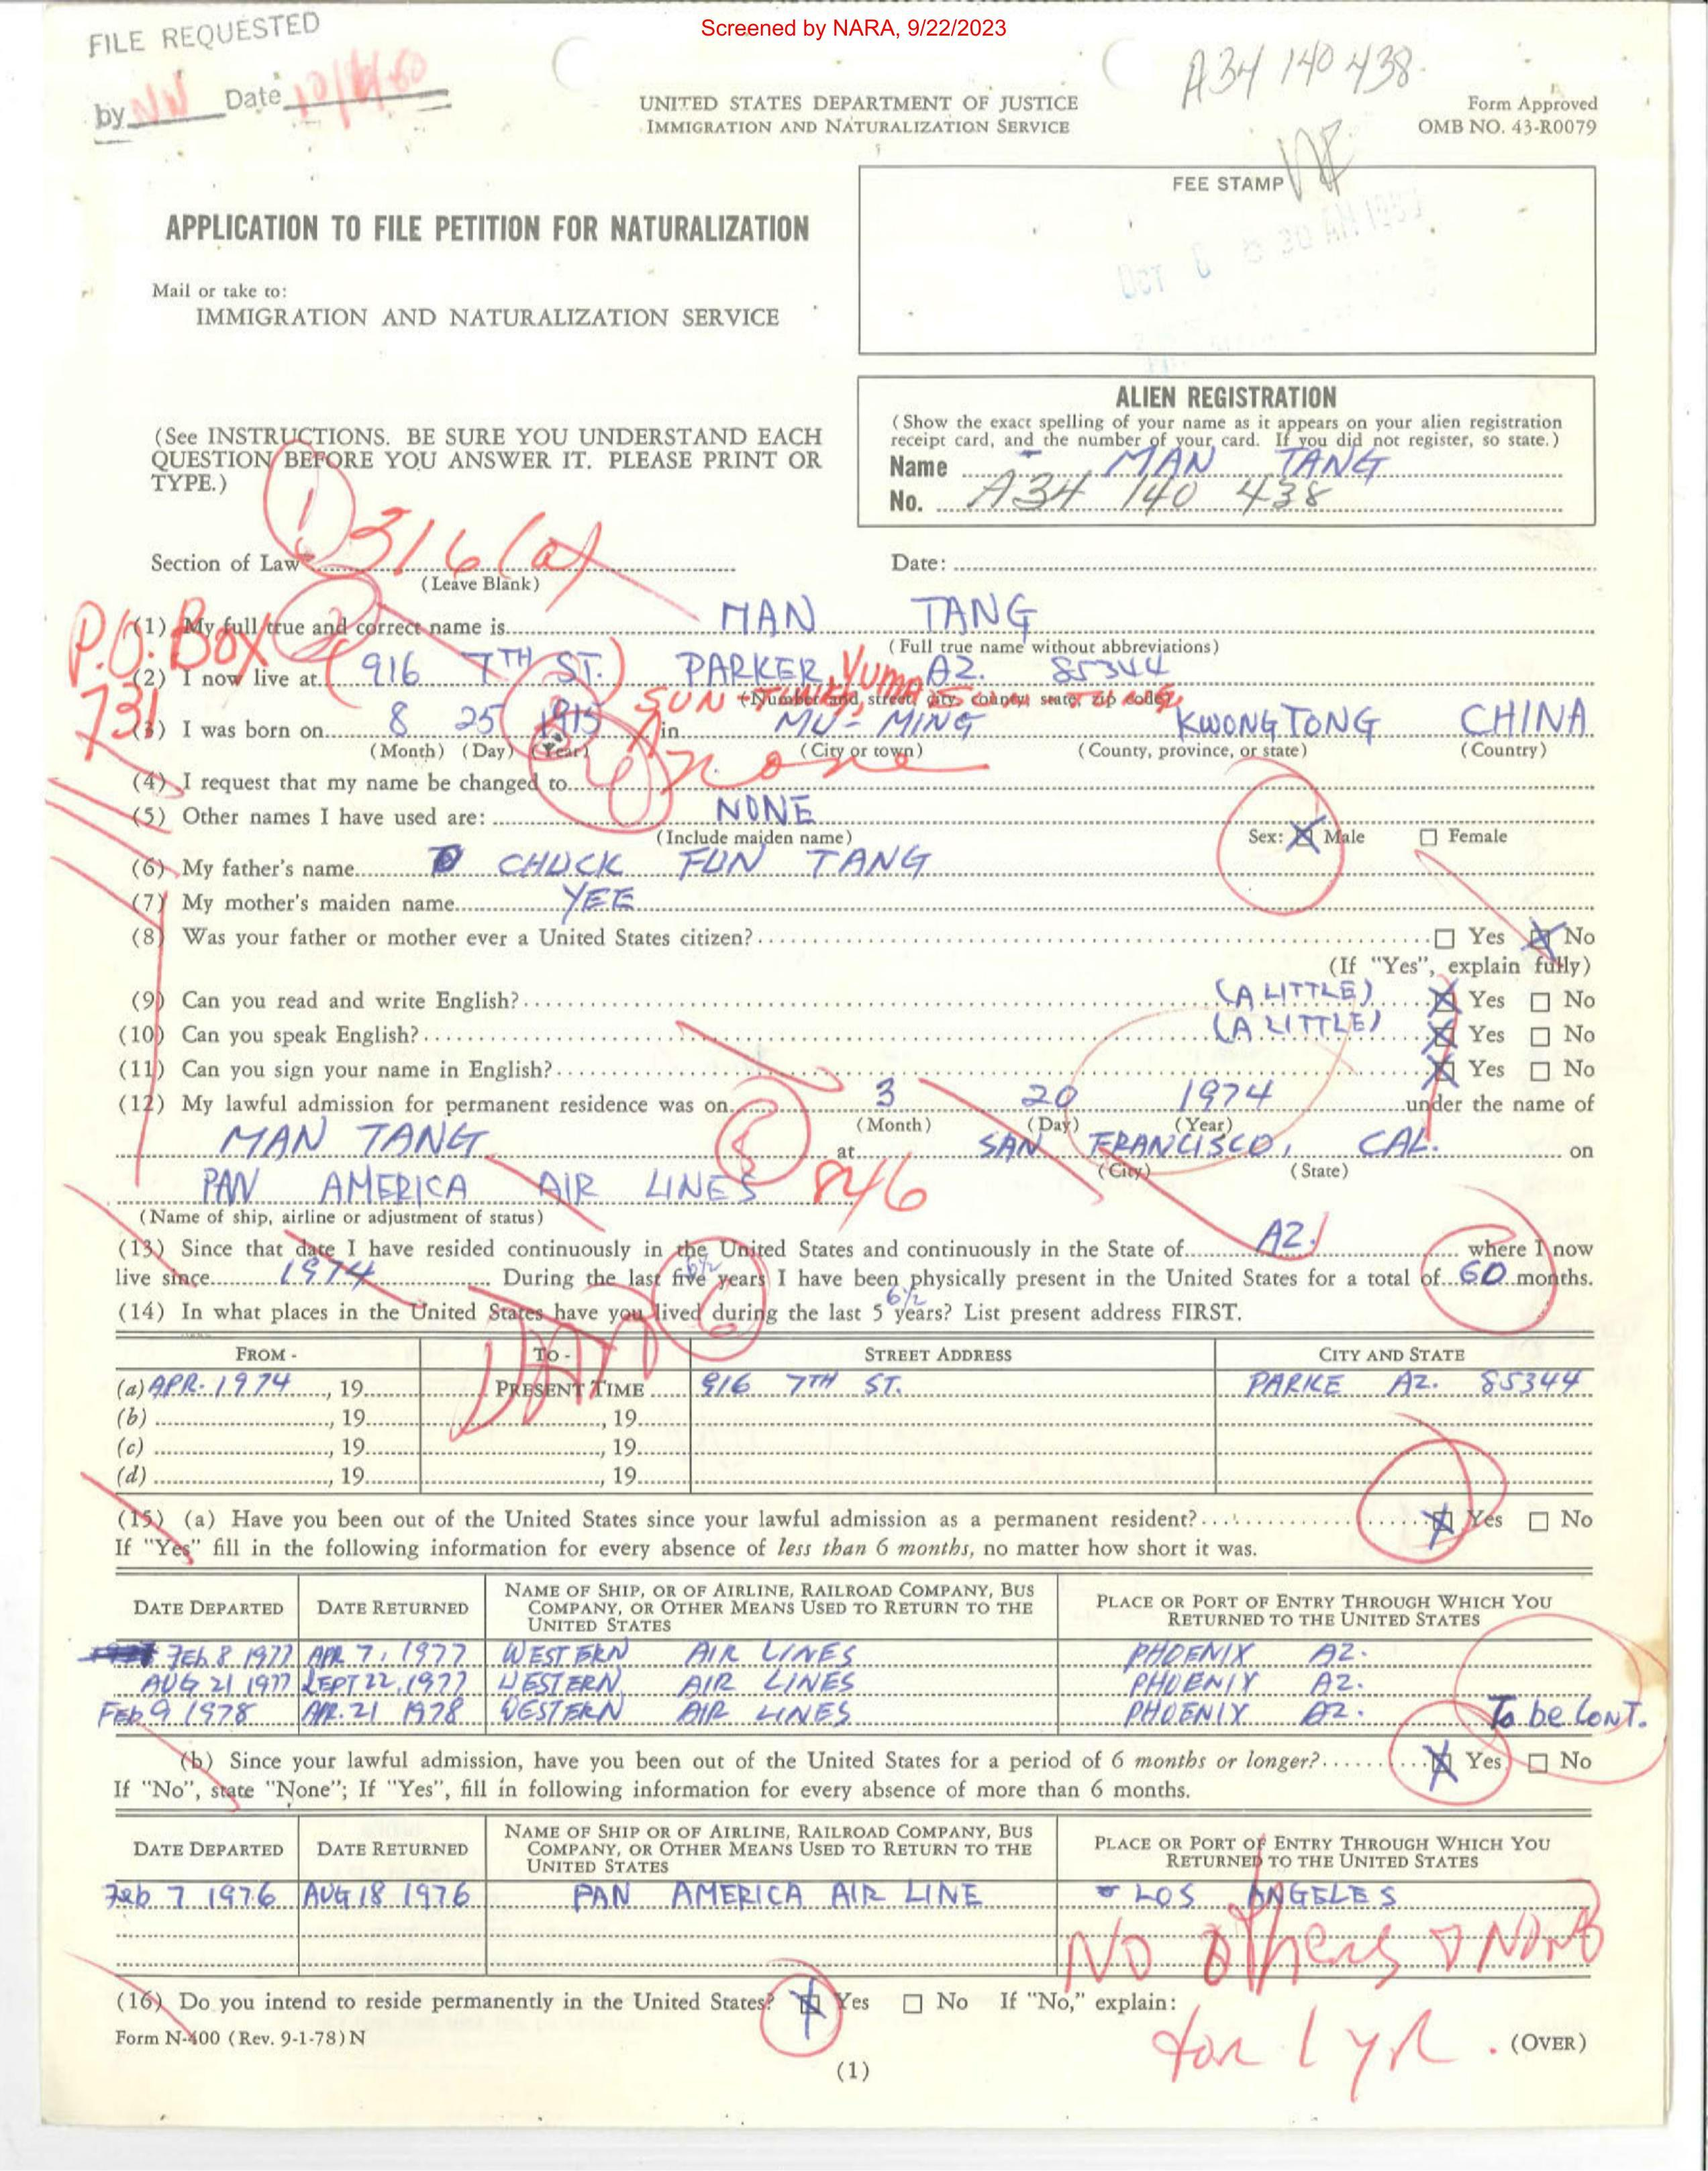 Screened by NARA, 9/22/2023
FILE REQUESTED
by NW Date
A34 140 438
UNITED STATES DEPARTMENT OF JUSTICE
IMMIGRATION AND NATURALIZATION SERVICE
Form Approved
OMB NO. 43-R0079
FEE STAMP
OCT
APPLICATION TO FILE PETITION FOR NATURALIZATION
Mail or take to:
IMMIGRATION AND NATURALIZATION SERVICE
ALIEN REGISTRATION
(Show the exact spelling of your name as it appears on your alien registration
receipt card, and the number of your card. If you did not register, so state.)
Name MAN TANG
No. A34 140 438
(See INSTRUCTIONS. BE SURE YOU UNDERSTAND EACH
QUESTION BEFORE YOU ANSWER IT. PLEASE PRINT OR
TYPE.)
1
Section of Law 316(a)
(Leave Blank)
Date:
P.O. Box 731
2
(1) My full true and correct name is MAN TANG
(Full true name without abbreviations)
(2) I now live at (916 7TH ST.) PARKER, Yuma AZ. 85344
(Number and street, city, county, state, zip code)
(3) I was born on 8 25 1915 in MU-MING KWONGTONG CHINA
(Month) (Day) (Year) (City or town) (County, province, or state) (Country)
(4) I request that my name be changed to none
(5) Other names I have used are: NONE
(Include maiden name)
Sex: X Male Female
(6) My father's name CHUCK FUN TANG
(7) My mother's maiden name YEE
(8) Was your father or mother ever a United States citizen? Yes X No
(If "Yes", explain fully)
(9) Can you read and write English? (A LITTLE) X Yes No
(10) Can you speak English? (A LITTLE) X Yes No
(11) Can you sign your name in English? X Yes No
(12) My lawful admission for permanent residence was on 3 20 1974 under the name of
(Month) (Day) (Year)
MAN TANG at SAN FRANCISCO, CAL. on
(City) (State)
PAN AMERICA AIR LINES 846
(Name of ship, airline or adjustment of status)
(13) Since that date I have resided continuously in the United States and continuously in the State of AZ. where I now
live since 1974 During the last five 6½ years I have been physically present in the United States for a total of 60 months.
(14) In what places in the United States have you lived during the last 5 6½ years? List present address FIRST.
FROM - TO - STREET ADDRESS CITY AND STATE
(a) APR. 1974, 19 PRESENT TIME 916 7TH ST. PARKE AZ. 85344
(b) , 19 , 19
(c) , 19 , 19
(d) , 19 , 19
(15) (a) Have you been out of the United States since your lawful admission as a permanent resident? X Yes No
If "Yes" fill in the following information for every absence of less than 6 months, no matter how short it was.
DATE DEPARTED DATE RETURNED NAME OF SHIP, OR OF AIRLINE, RAILROAD COMPANY, BUS COMPANY, OR OTHER MEANS USED TO RETURN TO THE UNITED STATES PLACE OR PORT OF ENTRY THROUGH WHICH YOU RETURNED TO THE UNITED STATES
FEb 8 1977 APR 7, 1977 WESTERN AIR LINES PHOENIX AZ.
AUG 21 1977 SEPT 22, 1977 WESTERN AIR LINES PHOENIX AZ.
FEB 9 1978 APR. 21 1978 WESTERN AIR LINES PHOENIX AZ. To be CONT.
(b) Since your lawful admission, have you been out of the United States for a period of 6 months or longer? X Yes No
If "No", state "None"; If "Yes", fill in following information for every absence of more than 6 months.
DATE DEPARTED DATE RETURNED NAME OF SHIP OR OF AIRLINE, RAILROAD COMPANY, BUS COMPANY, OR OTHER MEANS USED TO RETURN TO THE UNITED STATES PLACE OR PORT OF ENTRY THROUGH WHICH YOU RETURNED TO THE UNITED STATES
Feb 7 1976 AUG 18 1976 PAN AMERICA AIR LINE LOS ANGELES
No others & None
for 1 yr.
(16) Do you intend to reside permanently in the United States? X Yes No If "No," explain:
Form N-400 (Rev. 9-1-78) N
(OVER)
(1)